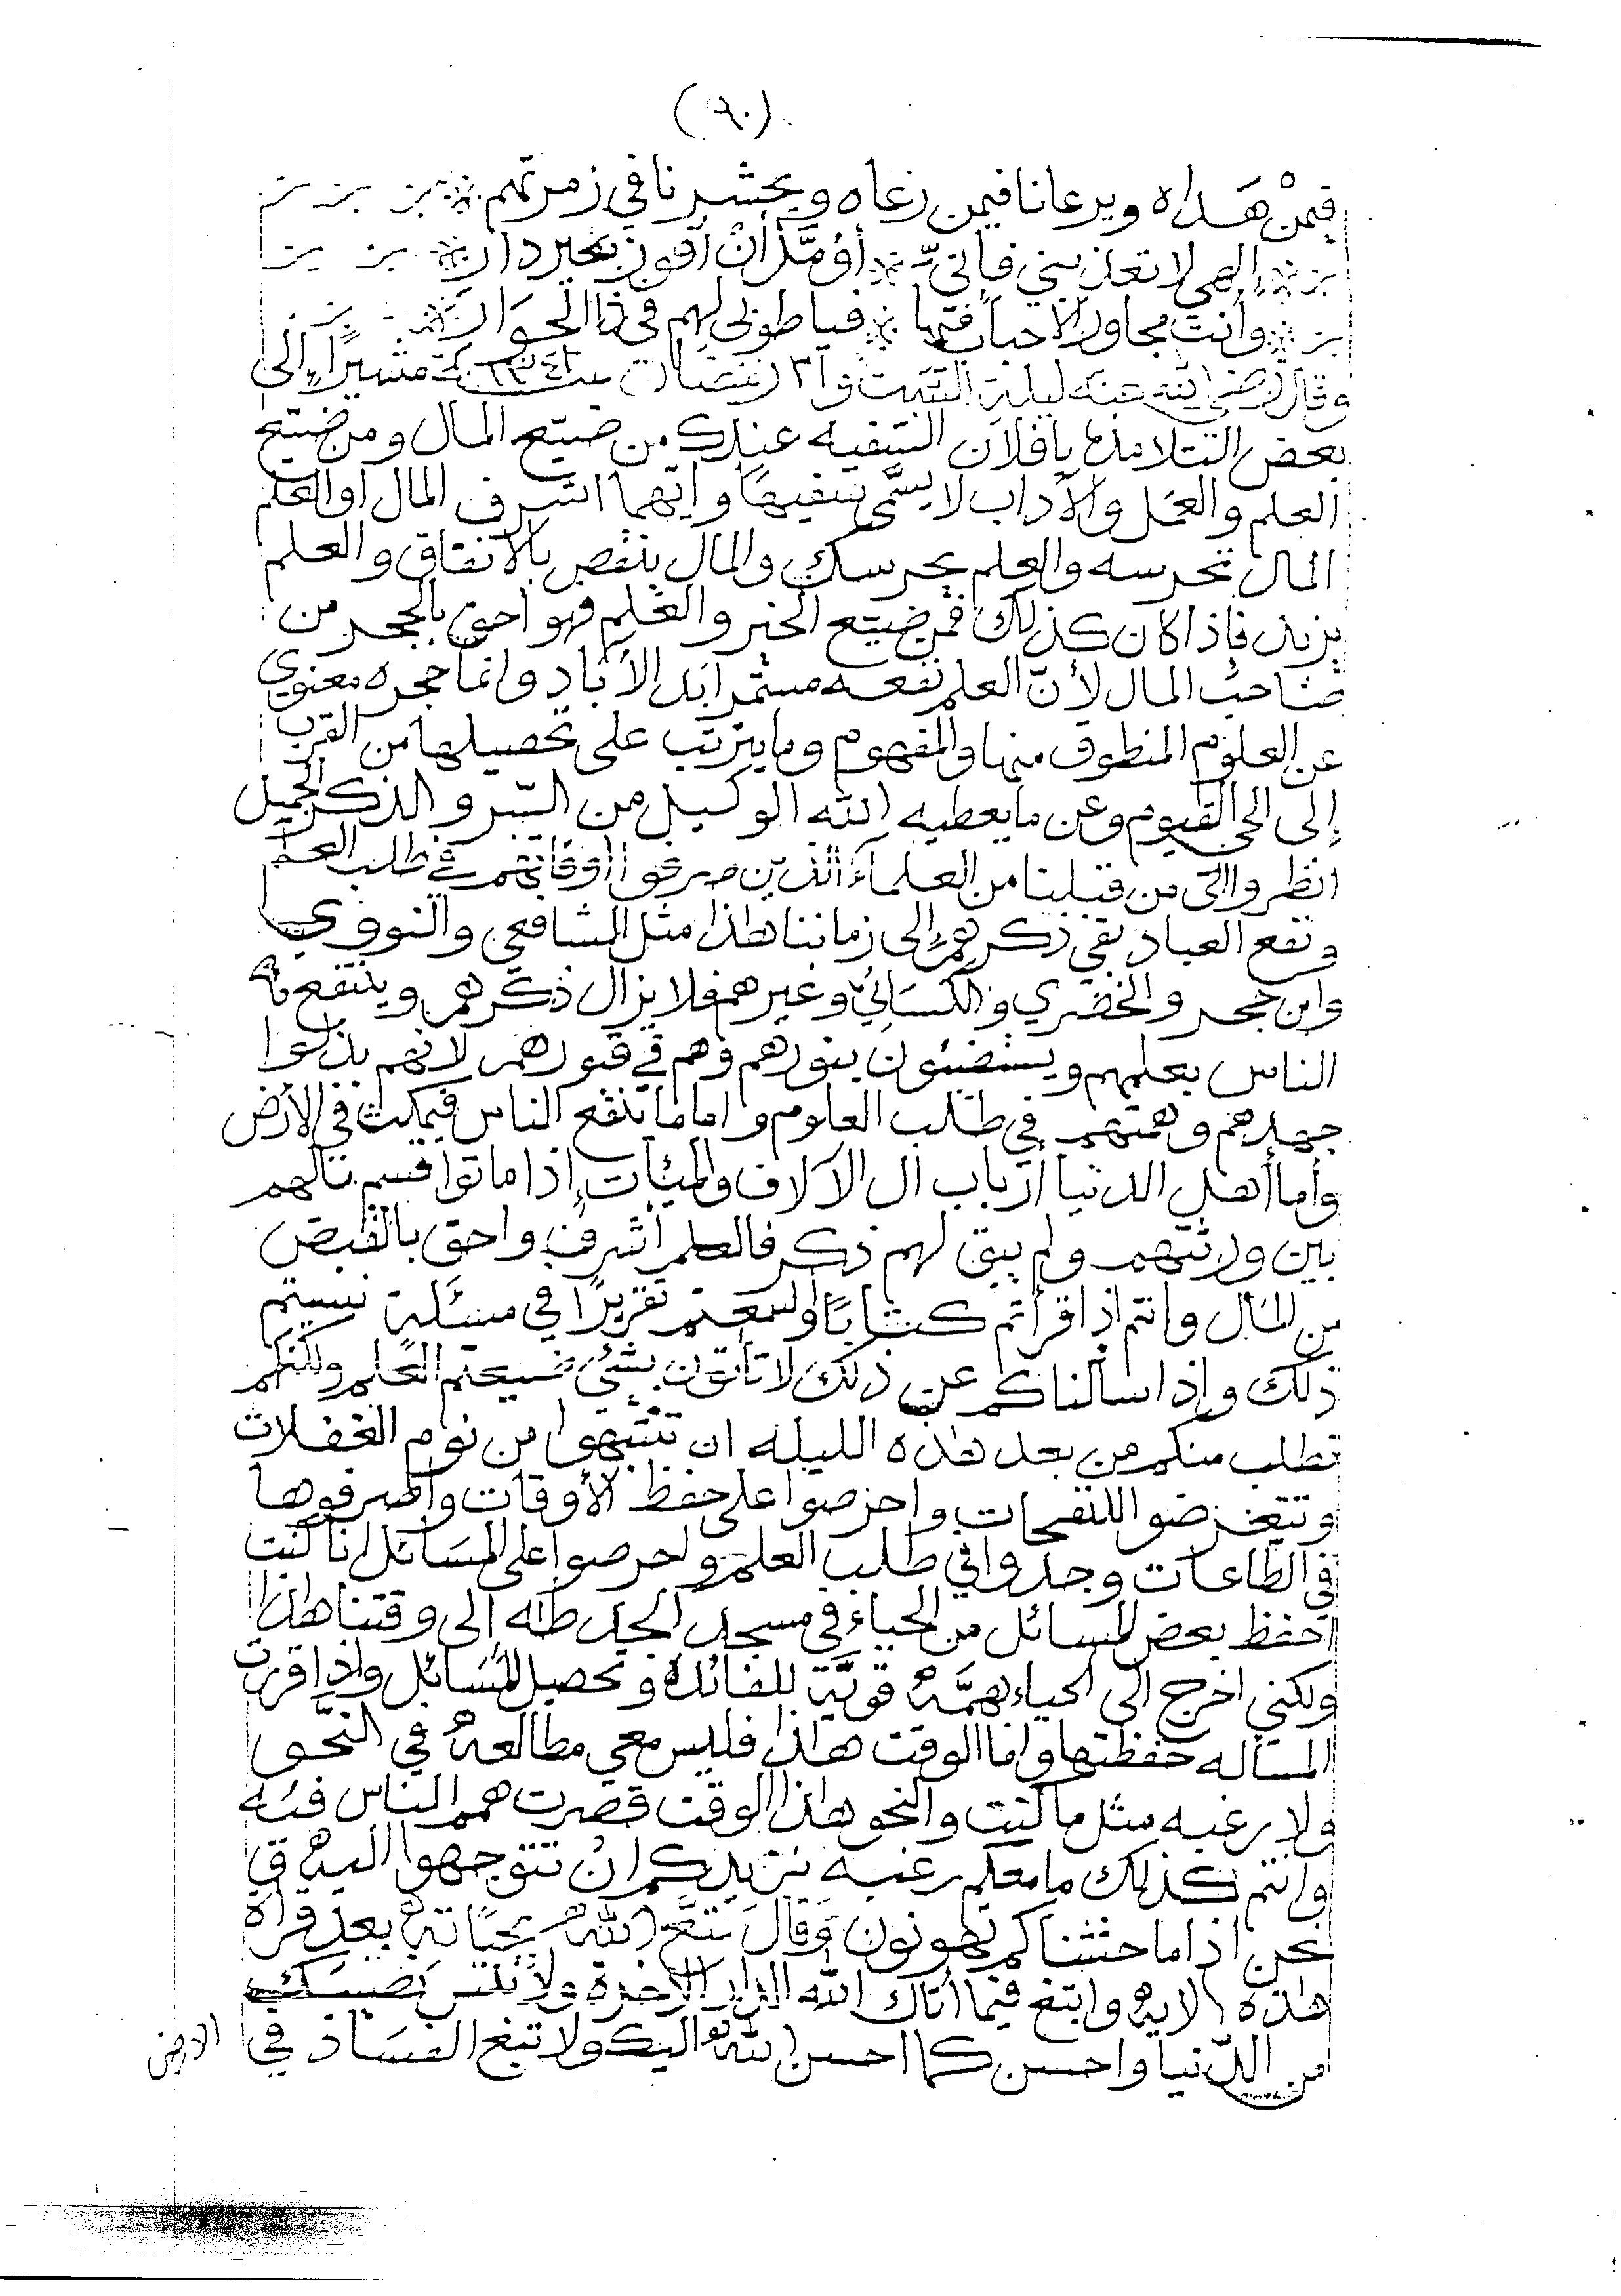 (٩٠)
فيمن هَداه ويرعانا فيمن رعاه ويحشرنا في زمرتهم
إلهي لا تعذبني فإنيّ أؤمّل أنْ أفوز بخير دار
وأنت مجاور الأحباب فيها فيا طوبى لهم في ذا الجوار
وقال رضي الله عنه ليلة السبت و٢١ رمضان سنة ١٣٤١ مشيرًا إلى
بعض التلامذه يا فلان السفيه عندك من ضيّع المال ومن ضيّع
العلم والعمل والآداب لا يسمّى سفيهًا وأيهما اشرف المال او العلم
المال تحرسه والعلم يحرسك والمال ينقص بالانفاق والعلم
يزيد فإذا كان كذلك فمن ضيّع الخير والعلم فهو أحق بالحجر من
صاحب المال لأنّ العلم نفعه مستمر أبَد الآباد وانما حجره معنوي
عن العلوم المنطوق منها والمفهوم وما يترتب على تحصيلها من القرب
إلى الحي القيوم وعن ما يعطيه الله الوكيل من السّر والذكر الجميل
انظروا إلى من قبلنا من العلماء الذين صرفوا أوقاتهم في طلب العلم
ونفع العباد بقي ذكرهم إلى زماننا هٰذا مثل الشافعي والنووي
وابن حجر والخضري والكسَائي وغيرهم فلا يزال ذكرهم وينتفع
الناس بعلمهم ويستضيئون بنورهم وهم في قبورهم لانهم بذلوا
جهدهم وهمتهم في طلب العلوم واما ما ينفع الناس فيمكث في الأرض
وأما أهل الدنيا أرباب ال الآلاف والمئات إذا ماتوا قسم مالهم
بين ورثتهم ولم يبق لهم ذكر فالعلم أشرف واحق بالقبض
من المال وانتم إذا قرأتم كتابًا وسمعتم تقريرًا في مسئلة نسيتم
ذلك وإذا سألناكم عن ذلك لا تأتون بشئ ضيعتم العلم ولكنكم
نطلب منكم من بعد هٰذه الليله ان تنتبهوا من نوم الغفلات
وتتعرضوا للنفحات واحرصوا على حفظ الأوقات واصرفوها
في الطاعات وجدوا في طلب العلم واحرصوا على المسَائل انا كنت
احفظ بعض المسائل من الحياء في مسجد الجد طٰه إلى وقتنا هٰذا
ولكني اخرج الى الحياء بهمَّة قويّة للفائدة وتحصيل المسَائل وإذا قررت
المسأله حفظتها واما الوقت هٰذا فليس معي مطالعة في النّحو
ولا رغبه مثل ما كنت والنحو هٰذا الوقت قصرت همم الناس فيه
وانتم كذلك ما معكم رغبه نريدكم انْ تتوجهوا اليه في
نحن اذا ما حثثناكم تهونون وَقالَ متّع اللهُ بحيَاتهِ بعد قراة
هٰذه الايه وابتغ فيما أتاك الله الدار الآخرة ولا تنس نصيبك
من الدّنيا واحسن كما احسن اللهُ اليك ولا تبغ الفسَاد في
الارض